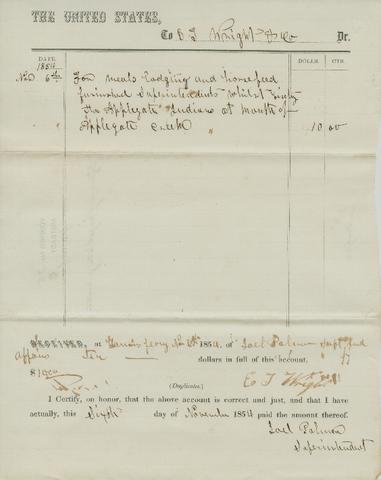 THE UNITED STATES,
To C T Wright & Co Dr.
DATE. DOLLS. CTS.
1854
Nov 6th For meals lodging and horsefeed
furnished Superintendents whilst
" the Applegate Indians at mouth of
Applegate Creek " 10 00
RECEIVED, at ferry Nov 6th 1854, of Joel Palmer Supt Ind
affairs Ten — dollars in full of this account.
$10.00
C T Wright
(Duplicates.)
I Certify, on honor, that the above account is correct and just, and that I have
actually, this Sixth day of November 1854 paid the amount thereof.
Joel Palmer
Superintendent